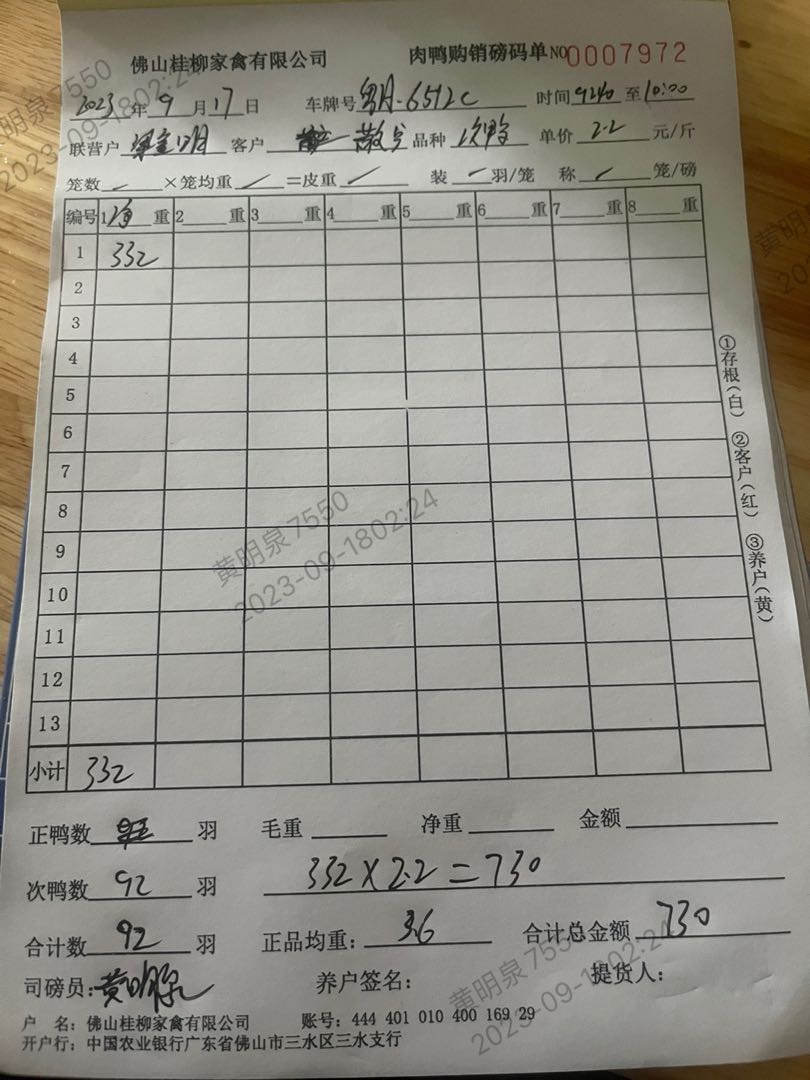 佛山桂柳家禽有限公司 肉鸭购销磅码单 NO 0007972
2023年9月17日 车牌号 6512C 时间 9:40 至 10:00
联营户 明 客户 散户 品种 次鸭 单价 2.2 元/斤
笼数 ×笼均重 =皮重 装 羽/笼 称 笼/磅
编号 1净重 2 重 3 重 4 重 5 重 6 重 7 重 8 重
1 332
2
3
4
5
6
7
8
9
10
11
12
13
小计 332
①存根(白) ②客户(红) ③养户(黄)
正鸭数 羽 毛重 净重 金额
次鸭数 92 羽 332×2.2=730
合计数 92 羽 正品均重: 3.6 合计总金额 730
司磅员:黄明泉 养户签名: 提货人:
户 名: 佛山桂柳家禽有限公司 账号: 444 401 010 400 169 29
开户行: 中国农业银行广东省佛山市三水区三水支行
黄明泉 7550
2023-09-18 02:24
黄明泉 7550
2023-09-18 02:24
黄明泉 7550
2023-09-18 02:24